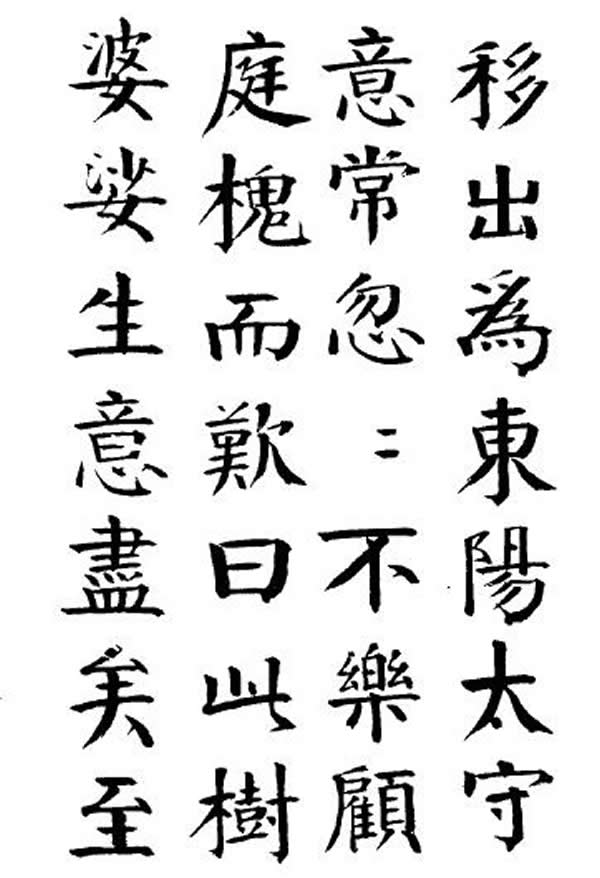 移出為東陽太守
意常忽〻不樂顧
庭槐而歎曰此樹
婆娑生意盡矣至